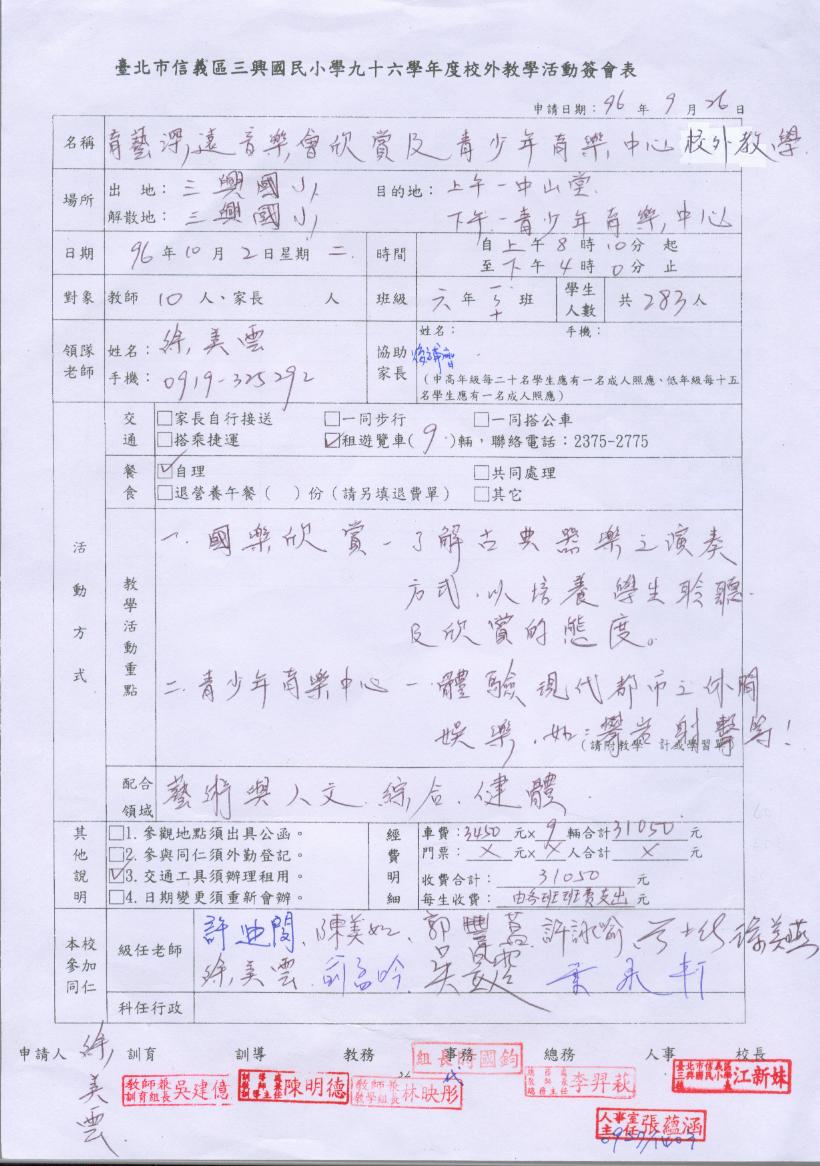 臺北市信義區三興國民小學九十六學年度校外教學活動簽會表
申請日期：96 年 9 月 26 日
名稱 育藝深遠音樂會欣賞及青少年育樂中心校外教學
場所 出 地：三興國小 目的地：上午－中山堂
解散地：三興國小 下午－青少年育樂中心
日期 96 年 10 月 2 日星期 二 時間 自上午 8 時 10 分 起
至下午 4 時 0 分 止
對象 教師 10 人、家長 人 班級 六 年 一~十 班 學生人數 共 283 人
領隊老師 姓名：徐美雲
手機：0919-325292
協助家長 姓名： 手機：
(中高年級每二十名學生應有一名成人照應、低年級每十五
名學生應有一名成人照應)
活動方式
交通 □家長自行接送 □一同步行 □一同搭公車
□搭乘捷運 ☑租遊覽車( 9 )輛，聯絡電話：2375-2775
餐食 ☑自理 □共同處理
□退營養午餐（ ）份（請另填退費單） □其它
教學活動重點
一. 國樂欣賞－了解古典器樂之演奏
方式,以培養學生聆聽
及欣賞的態度。
二. 青少年育樂中心－體驗現代都市之休閒
娛樂,如:攀岩射擊等!
(請附教學 計或學習單
配合領域 藝術與人文.綜合.健體
其他說明
□1.參觀地點須出具公函。
□2.參與同仁須外勤登記。
☑3.交通工具須辦理租用。
□4.日期變更須重新會辦。
經費明細
車費：3450 元x 9 輛合計 31050 元
門票： X 元x X 人合計 X 元
收費合計： 31050 元
每生收費：由各班班費支出 元
本校參加同仁 級任老師 陳美如、郭 許詠喻 徐美燕
徐美雲
科任行政
申請人 訓育 訓導 教務 事務 總務 人事 校長
徐美雲
組長 國鈞
教師兼訓育組長 吳建億
陳明德
教師兼教學組長 林映彤 代
李羿萩
江新妹
人事室主任 張蘊涵